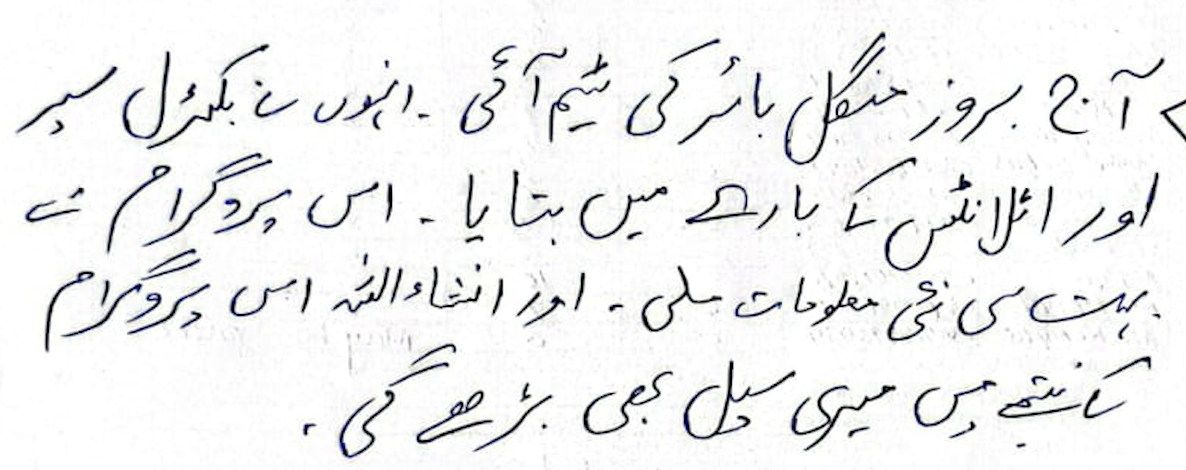 آج بروز منگل بائر کی ٹیم آئی ۔ انہوں نے بکٹرل سپر
اور اٹلانٹس کے بارے میں بتایا ۔ اس پروگرام سے
بہت سی نئی معلومات ملی ۔ اور انشاء اللہ اس پروگرام
کے نتیجے میں میری سیل بھی بڑھے گی ۔